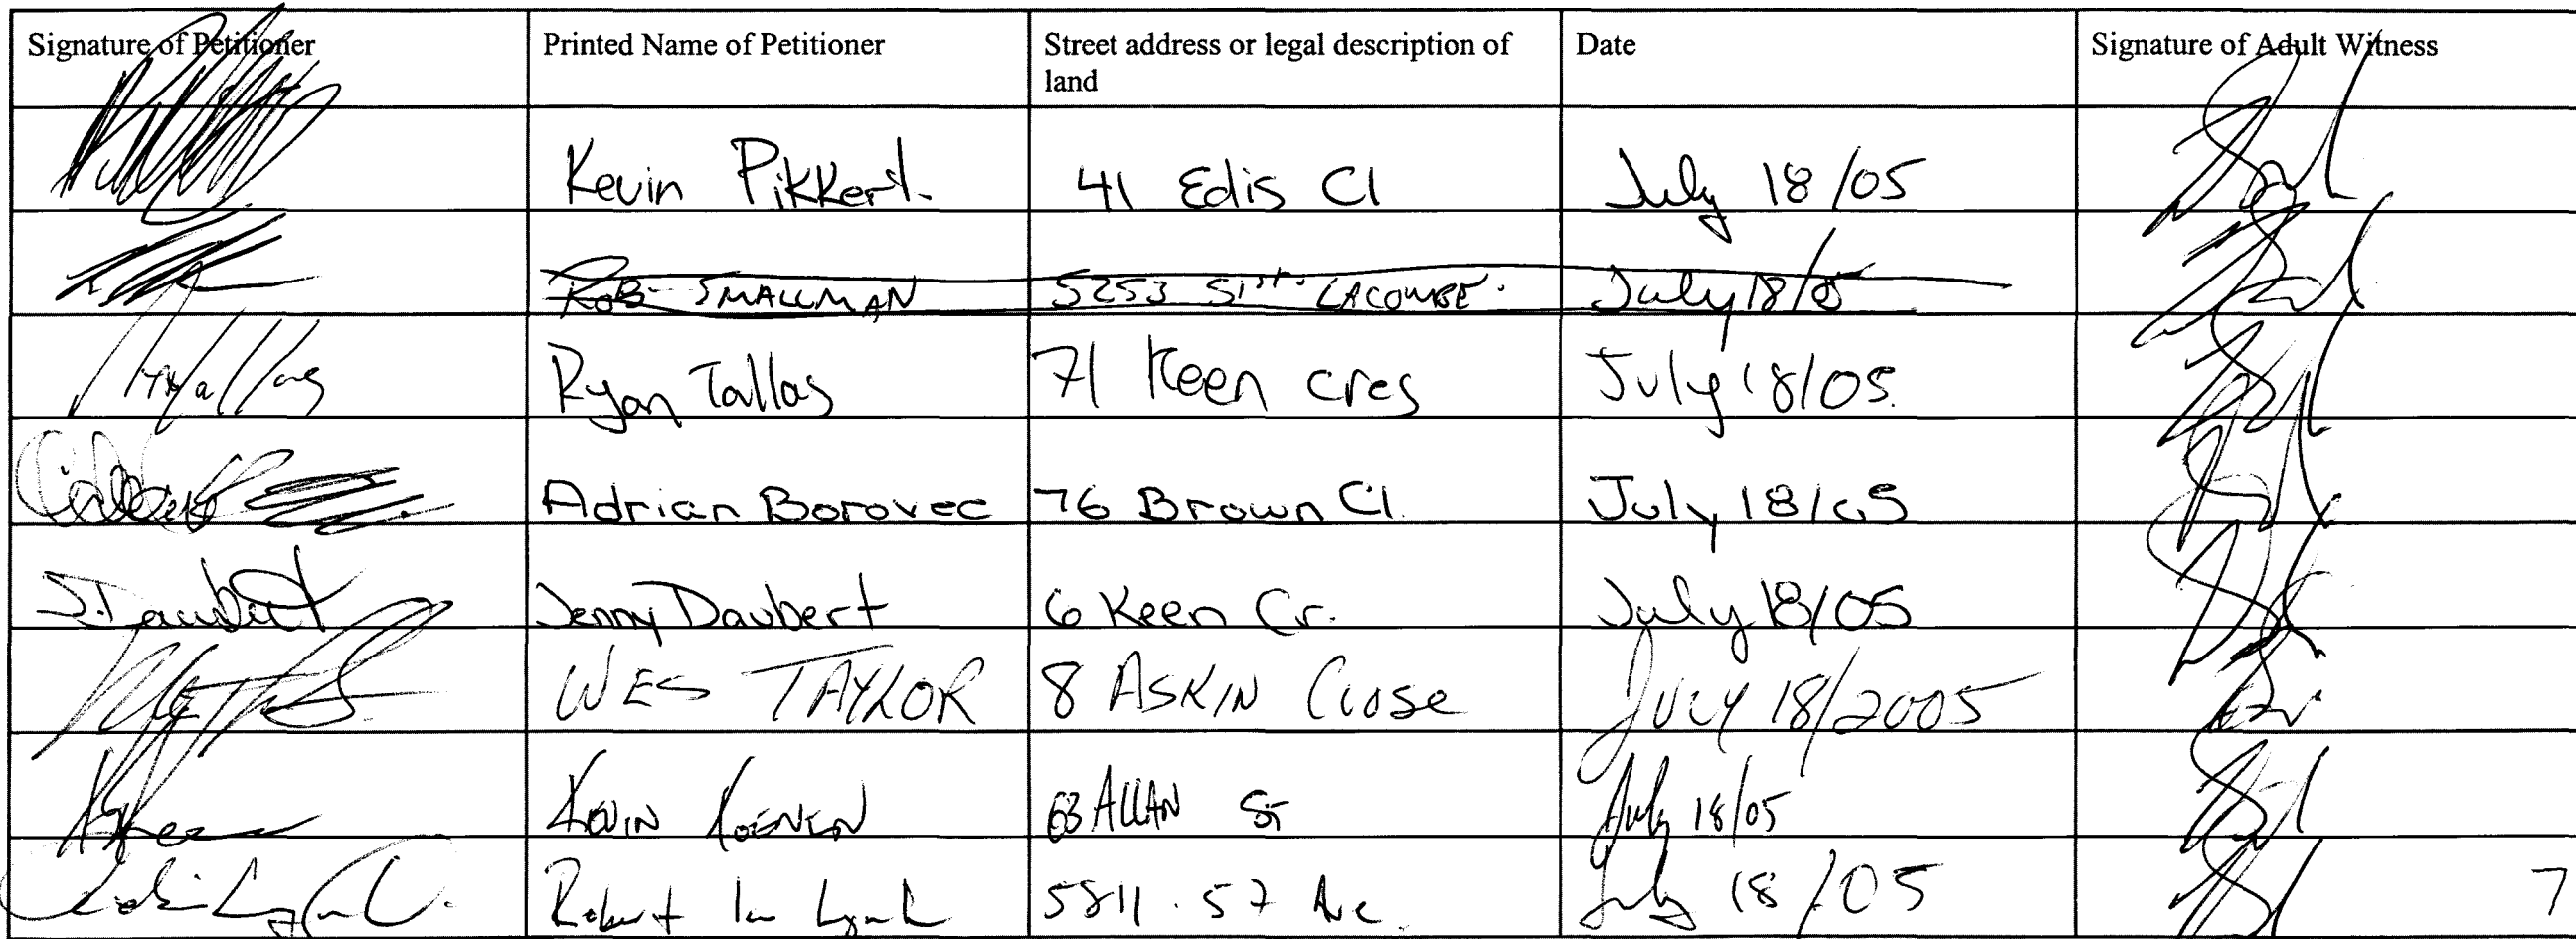 Signature of Petitioner Printed Name of Petitioner Street address or legal description of land Date Signature of Adult Witness
Kevin Pikkert 41 Edis Cl July 18/05
Rob SMALLMAN 5253 51st. LACOMBE. July 18/05
Ryan Tallas 71 Keen cres July 18/05.
Adrian Borovec 76 Brown Cl. July 18/05
J. Daubert Jenny Daubert 6 Keen Cr. July 18/05
WES TAYLOR 8 ASKIN Close JULY 18/2005
KEVIN KOENEN 63 ALLAN St July 18/05
Robert Ian Lynch 5811 . 57 Ave. July 18/05
7